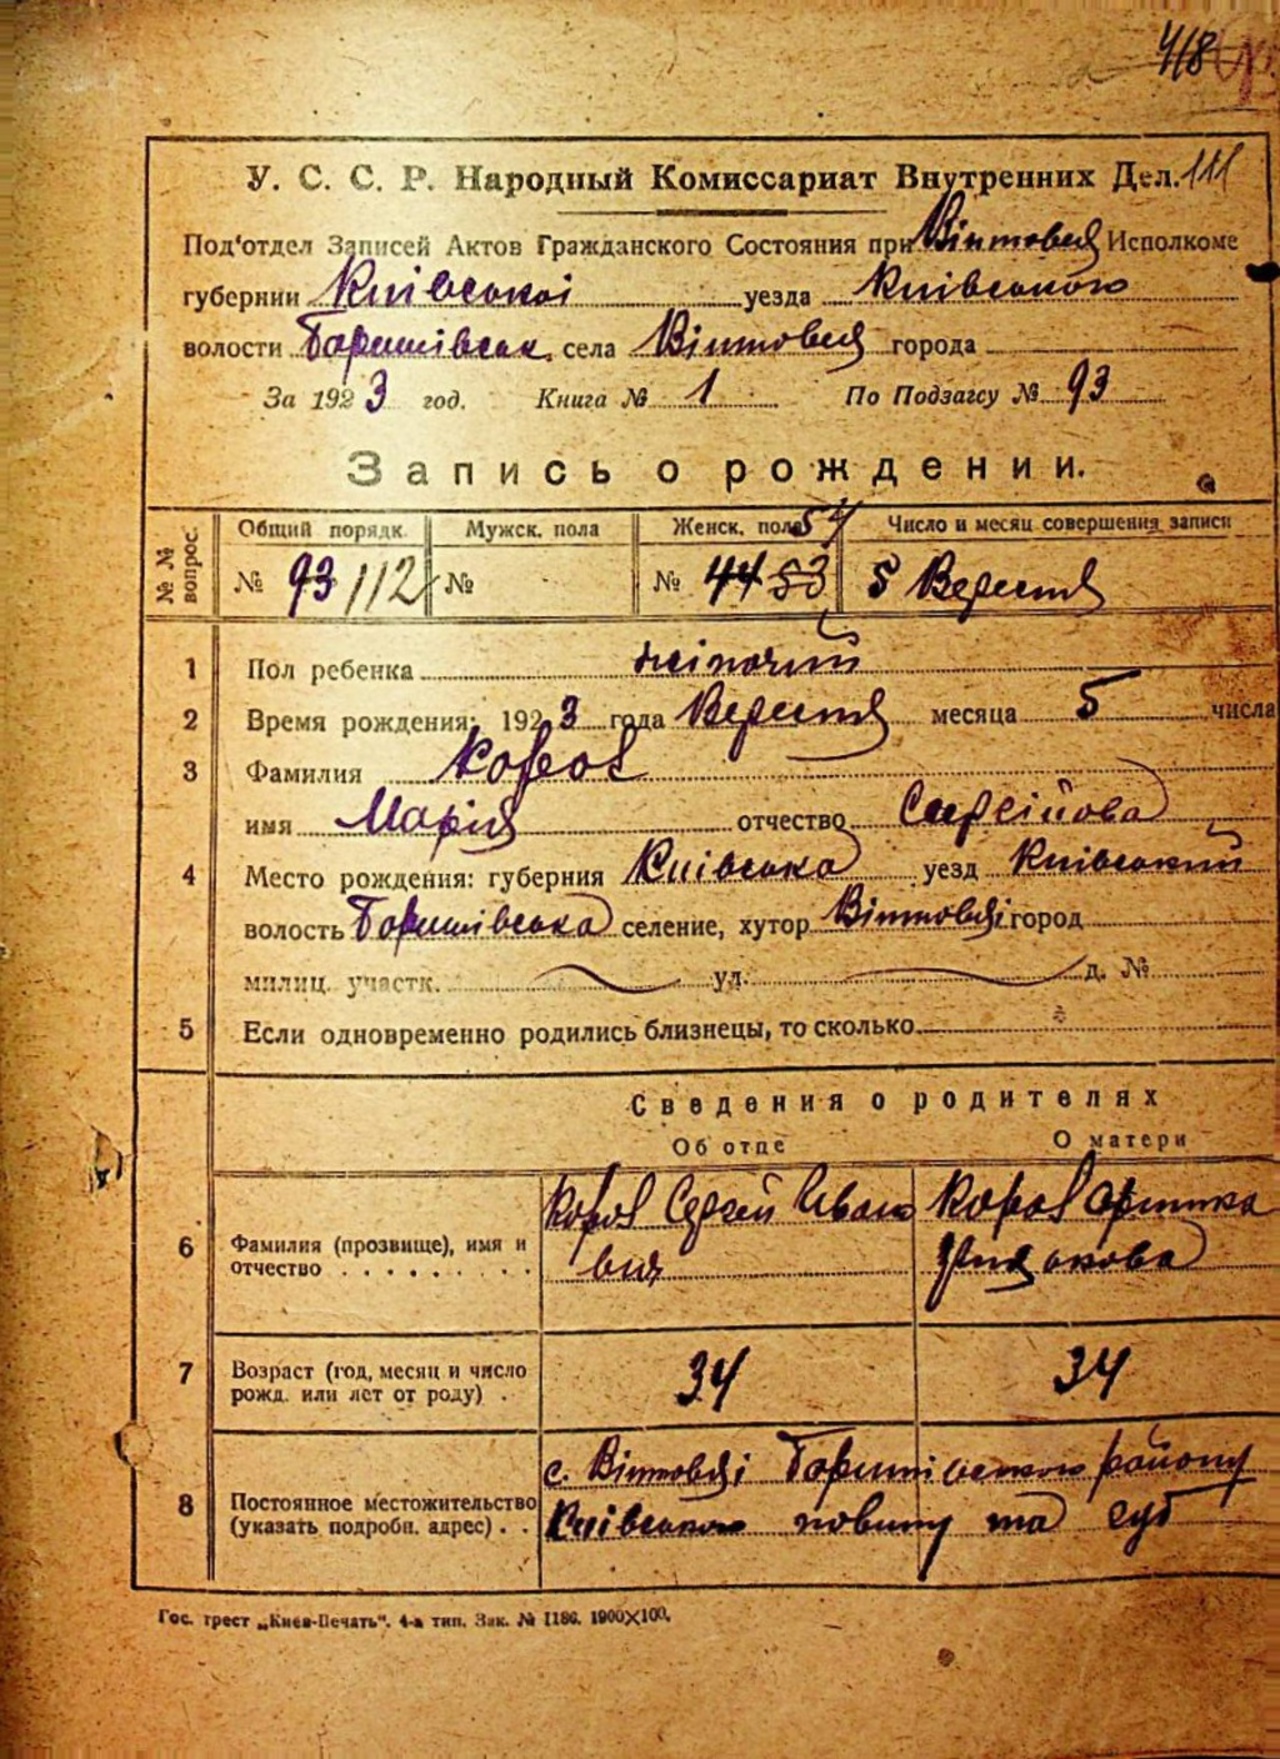 418
У. С. С. Р. Народный Комиссариат Внутренних Дел. 111
Под'отдел Записей Актов Гражданского Состояния при Исполкоме
губернии Київської уезда Київського
волости села города
За 1923 год. Книга № 1 По Подзагсу № 93
Запись о рождении.
№ № вопрос.
Общий порядк. Мужск. пола Женск. пола 54 Число и месяц совершения записи
№ 93 112 № № 44 53 5 Вересня
1 Пол ребенка жіночий
2 Время рождения: 1923 года Вересня месяца 5 числа
3 Фамилия
имя Марія отчество Сергійова
4 Место рождения: губерния Київська уезд Київський
волость селение, хутор город
милиц. участк. ул. д. №
5 Если одновременно родились близнецы, то сколько
Сведения о родителях
Об отце О матери
6 Фамилия (прозвище), имя и отчество . . . . . . . . .
Сергей Ивано
вич
7 Возраст (год, месяц и число рожд. или лет от роду) . 34 34
8 Постоянное местожительство (указать подробн. адрес) . .
с. району
Київського повіту та губ
Гос. трест „Киев-Печать". 4-я тип. Зак. № 1186. 1900×100.